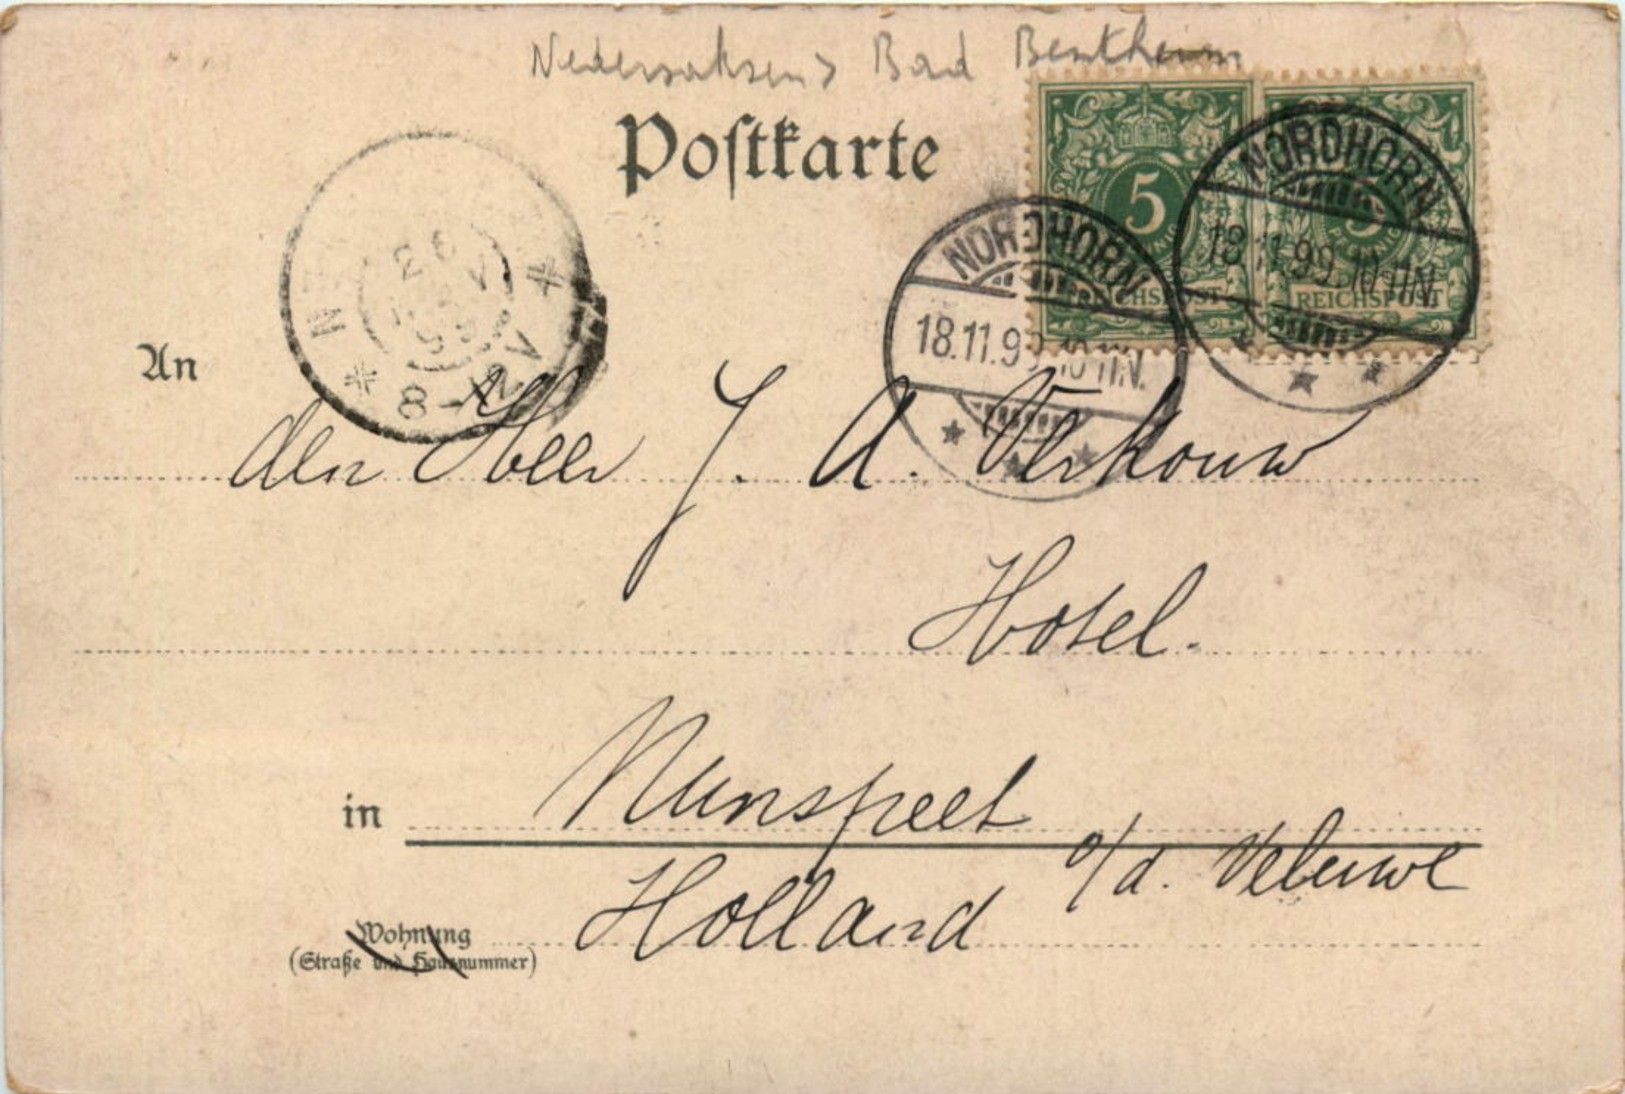 Nedersaksen > Bad Bentheim
Postkarte
5
REICHSPOST
5
PFENNIG
REICHSPOST
NORDHORN
18.11.99. 10-11N.
NORDHORN
18.11.9
8-12V
An
den Heer J. A. Verkouw
Hotel.
in Nunspeet
o/d. Veluwe
Holland
Wohnung
(Straße und Hausnummer)